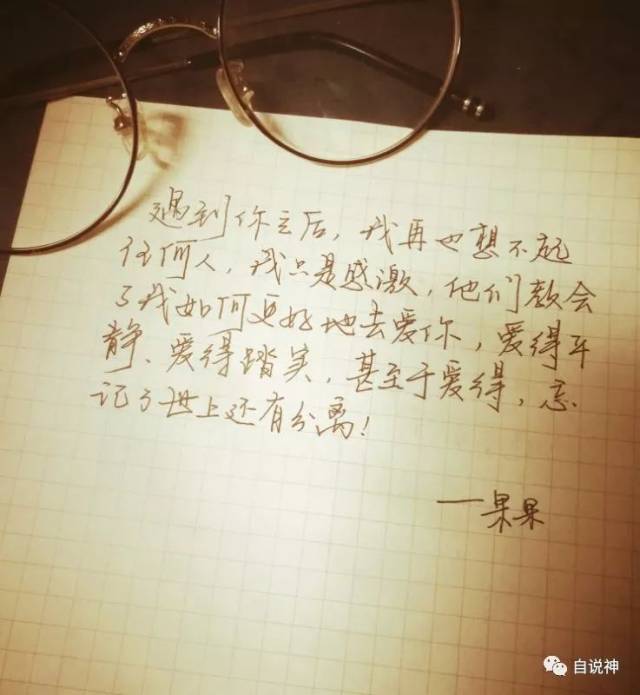 遇到你之后，我再也想不起
任何人，我只是感激，他们教会
了我如何更好地去爱你，爱得平
静、爱得踏实，甚至于爱得，忘
记了世上还有分离！
——果果
自说神